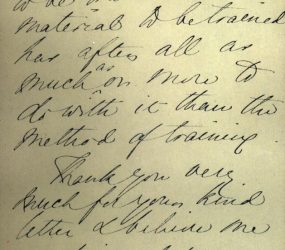 to be
material to be trained
has after all as
much as or more to
do with it than the
method of training.
Thank you very
much for your kind
letter & believe me